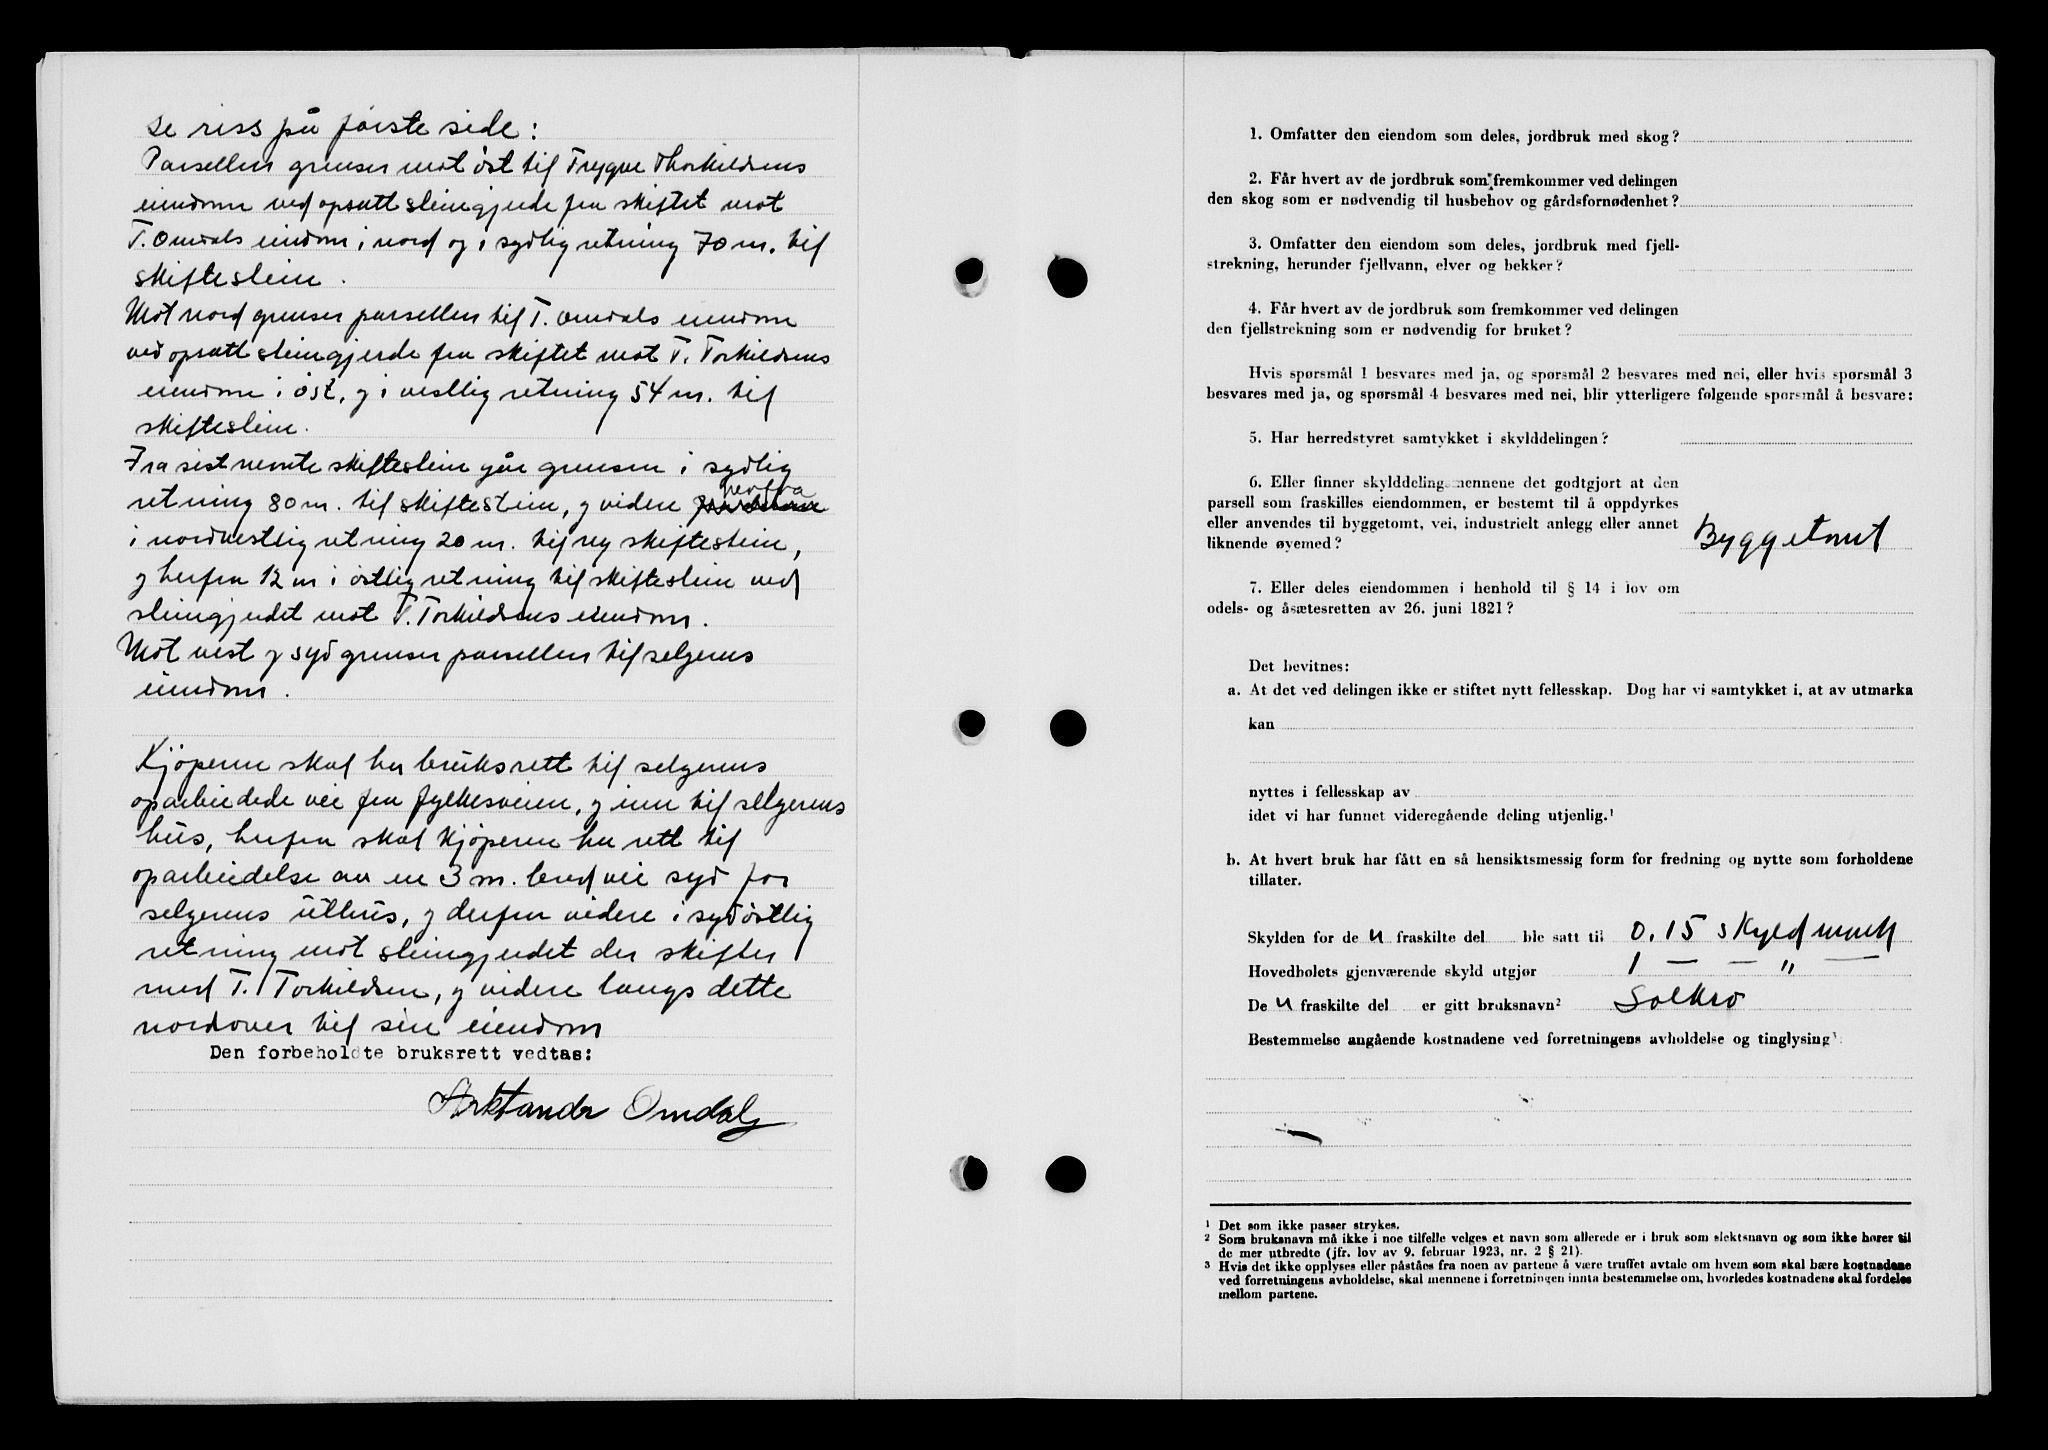 se riss på første side:
Parsellen grenser mot øst til Trygve Thorkildsens
eiendom ved opsatt steingjerde fra skiftet mot
T. Omdals eiendom i nord og i sydlig retning 70 m. til
skiftestein.
Mot nord grenser parsellen til T. Omdals eiendom
ved opsatt steingjerde fra skiftet mot T. Torkildsens
eiendom i øst, og i vestlig retning 54 m. til
skiftestein.
Fra sist nevnte skiftestein går grensen i sydlig
retning 80 m. til skiftestein, og videre herfra
i nordvestlig retning 20 m. til ny skiftestein,
og herfra 12 m i østlig retning til skiftestein ved
steingjerdet mot T. Torkildsens eiendom.
Mot vest og syd grenser parsellen til selgerens
eiendom.
Kjøperen skal ha bruksrett til selgerens
oparbeidede vei fra fylkesveien, og inn til selgerens
hus, herfra skal kjøperen ha rett til
oparbeidelse av en 3 m. bred vei syd for
selgerens uthus, og derfra videre i sydøstlig
retning mot steingjerdet der skifter
med T. Torkildsen, og videre langs dette
nordover til sin eiendom
Den forbeholdte bruksrett vedtas:
Arktander Omdal
1. Omfatter den eiendom som deles, jordbruk med skog?
2. Får hvert av de jordbruk som fremkommer ved delingen
den skog som er nødvendig til husbehov og gårdsfornødenhet?
3. Omfatter den eiendom som deles, jordbruk med fjell-
strekning, herunder fjellvann, elver og bekker?
4. Får hvert av de jordbruk som fremkommer ved delingen
den fjellstrekning som er nødvendig for bruket?
Hvis spørsmål 1 besvares med ja, og spørsmål 2 besvares med nei, eller hvis spørsmål 3
besvares med ja, og spørsmål 4 besvares med nei, blir ytterligere følgende spørsmål å besvare:
5. Har herredstyret samtykket i skylddelingen?
6. Eller finner skylddelingsmennene det godtgjort at den
parsell som fraskilles eiendommen, er bestemt til å oppdyrkes
eller anvendes til byggetomt, vei, industrielt anlegg eller annet
liknende øyemed? Byggetomt
7. Eller deles eiendommen i henhold til § 14 i lov om
odels- og åsætesretten av 26. juni 1821?
Det bevitnes:
a. At det ved delingen ikke er stiftet nytt fellesskap. Dog har vi samtykket i, at av utmarka
kan
nyttes i fellesskap av
idet vi har funnet videregående deling utjenlig.¹
b. At hvert bruk har fått en så hensiktsmessig form for fredning og nytte som forholdene
tillater.
Skylden for de n fraskilte del ble satt til 0,15 skyldmark
Hovedbølets gjenværende skyld utgjør 1 — — " —
De n fraskilte del er gitt bruksnavn² Solkro
Bestemmelse angående kostnadene ved forretningens avholdelse og tinglysing³:
¹ Det som ikke passer strykes.
² Som bruksnavn må ikke i noe tilfelle velges et navn som allerede er i bruk som slektsnavn og som ikke hører til
de mer utbredte (jfr. lov av 9. februar 1923, nr. 2 § 21).
³ Hvis det ikke opplyses eller påståes fra noen av partene å være truffet avtale om hvem som skal bære kostnadene
ved forretningens avholdelse, skal mennene i forretningen innta bestemmelse om, hvorledes kostnadene skal fordeles
mellom partene.